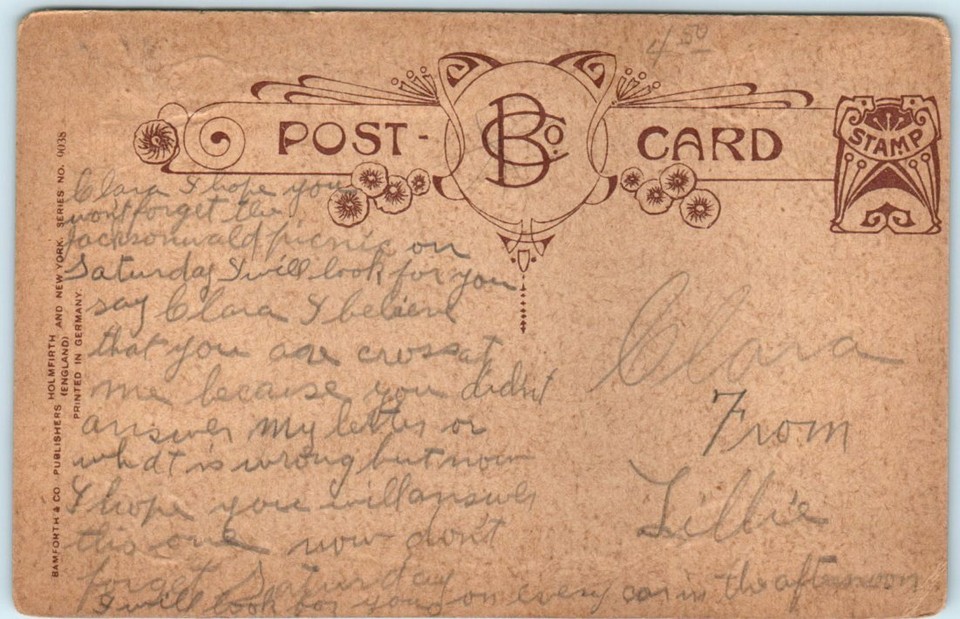 4 50
POST-
BCo.
CARD
STAMP
Clara I hope you
wont forget the
Jacksonwald picnic on
Saturday I will look for you
say Clara I believe
that you are cross at
me because you didnt
answer my letter or
what is wrong but now
I hope you will answer
this one now don't
forget Saturday
I will look for you on every car in the afternoon
Clara
From
Lillie
BAMFORTH & CO. PUBLISHERS HOLMFIRTH (ENGLAND) AND NEW YORK. SERIES NO. 9038
PRINTED IN GERMANY.